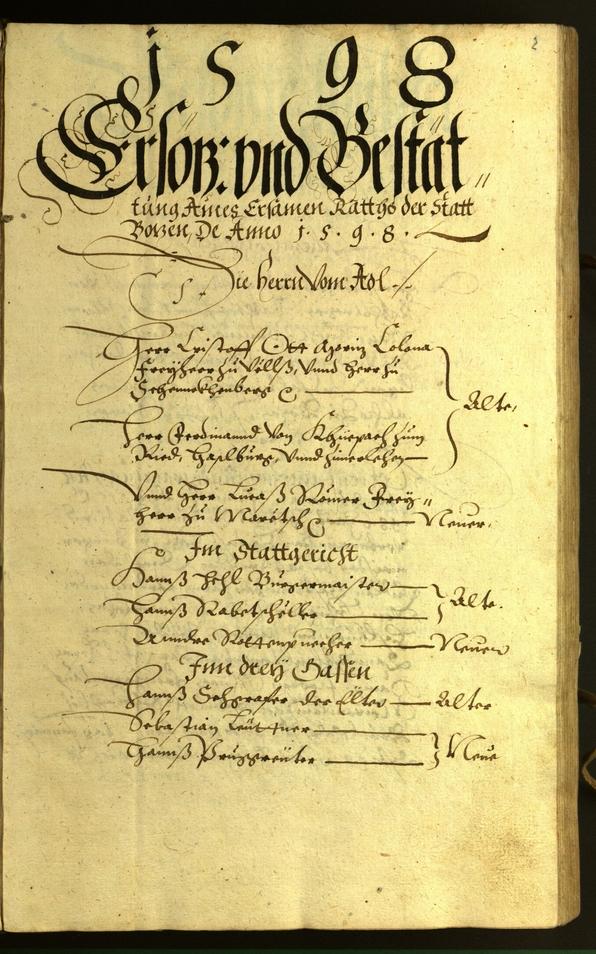 2
1598
Ersöz: vnd Bestät„
tung Aines Ersamen Rattħs der Statt
Bozen, De Anno 1. 5. 9. 8.
Die Herrn vom Adl.
Herr Cristoff Ott Colona
Freyherr zu Völlß, Vnnd Herr zu
Schennekhenberg
Alte,
Herr Ferdinannd von Khüepach zum
Ried, Haslburg, Vnnd
Vnnd Herr Lucaß Römer Frey„
herr zu Maretsch Neuer.
Im Stattgericht
Hannß Hehl Burgermaister
Hannß Rabetscheller
Alte.
Anndre Rottenpuecher Neuer
Inn drey Gassen
Hannß Schgrafer der Elter Alter
Sebastian
Hannß Pruggreüter
Neue